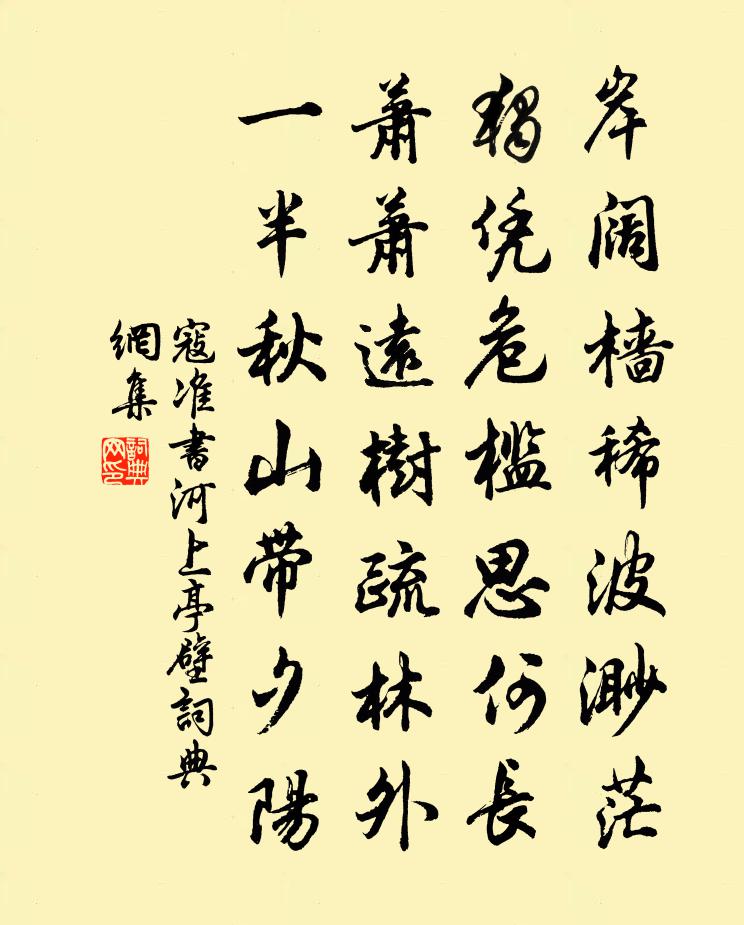 岸闊檣稀波渺茫
獨凭危檻思何長
蕭蕭遠樹疏林外
一半秋山帶夕陽
寇准書河上亭壁詞典
網集
詞典
网印